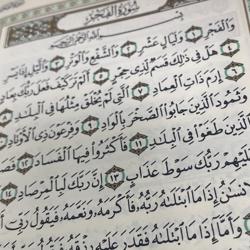 سُورَةُ الْفَجْرِ
بِسْمِ اللَّهِ الرَّحْمَٰنِ الرَّحِيمِ
وَالْفَجْرِ ١ وَلَيَالٍ عَشْرٍ ٢ وَالشَّفْعِ وَالْوَتْرِ ٣ وَاللَّيْلِ إِذَا يَسْرِ
٤ هَلْ فِي ذَٰلِكَ قَسَمٌ لِّذِي حِجْرٍ ٥ أَلَمْ تَرَ كَيْفَ فَعَلَ رَبُّكَ بِعَادٍ
٦ إِرَمَ ذَاتِ الْعِمَادِ ٧ الَّتِي لَمْ يُخْلَقْ مِثْلُهَا فِي الْبِلَادِ ٨
وَثَمُودَ الَّذِينَ جَابُوا الصَّخْرَ بِالْوَادِ ٩ وَفِرْعَوْنَ ذِي الْأَوْتَادِ
الَّذِينَ طَغَوْا فِي الْبِلَادِ ١١ فَأَكْثَرُوا فِيهَا الْفَسَادَ ١٢ فَصَبَّ
عَلَيْهِمْ رَبُّكَ سَوْطَ عَذَابٍ ١٣ إِنَّ رَبَّكَ لَبِالْمِرْصَادِ ١٤
إِذَا مَا ابْتَلَاهُ رَبُّهُ فَأَكْرَمَهُ وَنَعَّمَهُ فَيَقُولُ رَبِّي
وَأَمَّا إِذَا مَا ابْتَلَاهُ فَقَدَرَ عَلَيْهِ رِزْقَهُ